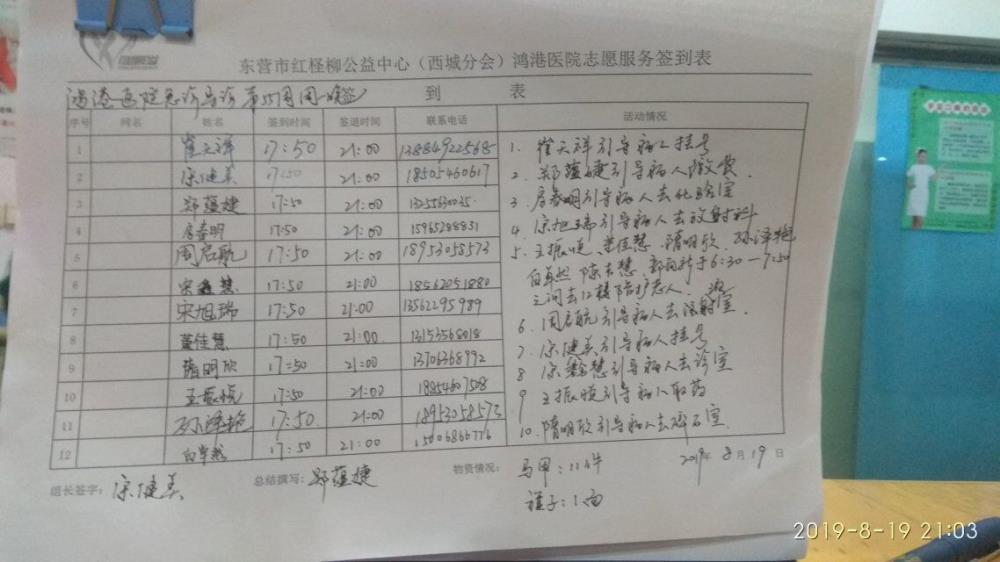 东营市红柽柳公益中心（西城分会）鸿港医院志愿服务签到表
鸿港医院急诊导诊第55周周一晚签 到 表
序号 网名 姓名 签到时间 签退时间 联系电话 活动情况
1 崔天祥 17:50 21:00 13884922568
2 宗健美 17:50 21:00 18505460617
3 郑蕴婕 17:50 21:00 13255630035
4 房春明 17:50 21:00 15965288831
5 周启航 17:50 21:00 18953058573
6 宋鑫慧 17:50 21:00 18562051880
7 宋旭瑞 17:50 21:00 13562295989
8 董佳慧 17:50 21:00 13153568018
9 隋明欣 17:50 21:00 13706368992
10 王振悦 17:50 21:00 18854607508
11 孙泽艳 17:50 21:00 18953058573
12 17:50 21:00 15006866776
1. 崔天祥引导病人挂号
2. 郑蕴婕引导病人缴费
3. 房春明引导病人去化验室
4 宋旭瑞引导病人去放射科
5. 王振悦、董佳慧、隋明欣、孙泽艳
于6:30—7:50
之间去12楼陪护老人.
6. 周启航引导病人去注射室
7. 宗健美引导病人挂号
8 宋鑫慧引导病人去诊室
9 王振悦引导病人取药
10. 隋明欣引导病人去碎石室.
组长签字： 宗健美 总结撰写: 郑蕴婕 物资情况: 马甲：11件 2019年 8月19日
2019-8-19 21:03